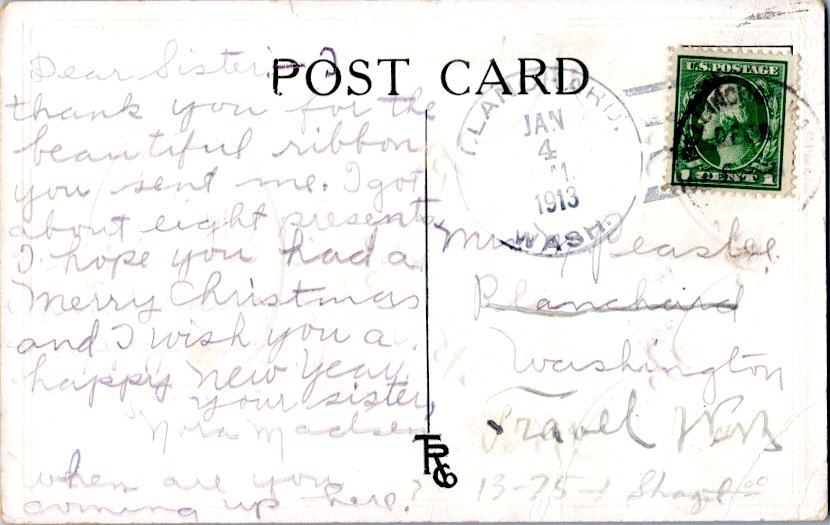 POST CARD
Dear Sister:- I
thank you for the
beautiful ribbon
you sent me. I got
about eight presents.
I hope you had a
Merry Christmas
and I wish you a
happy New Year.
your sister,
Nora Madsen
when are you
coming up here?
JAN
4
1913
WASH.
U.S. POSTAGE
1 CENT 1
Peaslee
Planchard
Washington
Travel
13-75
TRCo